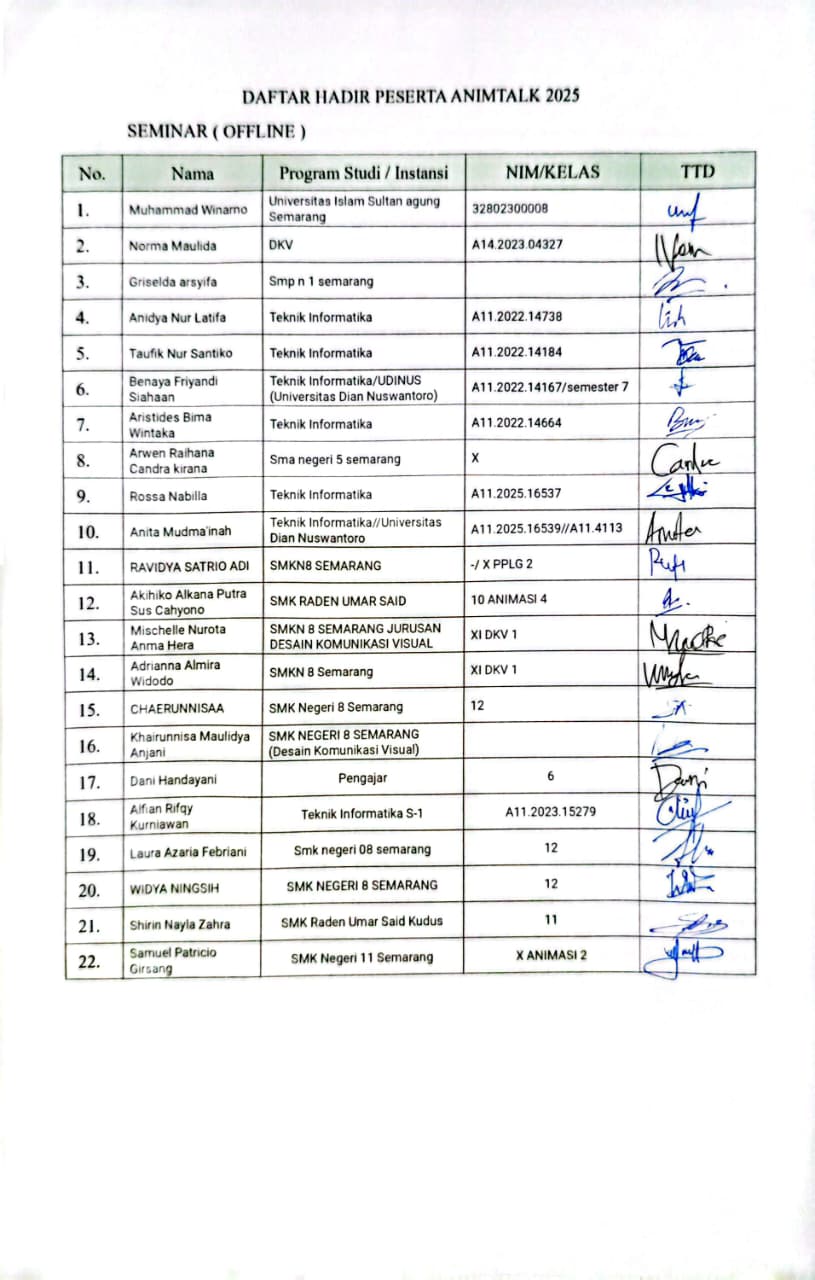 DAFTAR HADIR PESERTA ANIMTALK 2025
SEMINAR ( OFFLINE )
No. Nama Program Studi / Instansi NIM/KELAS TTD
1. Muhammad Winarno Universitas Islam Sultan agung Semarang 32802300008
2. Norma Maulida DKV A14.2023.04327
3. Griselda arsyifa Smp n 1 semarang
4. Anidya Nur Latifa Teknik Informatika A11.2022.14738
5. Taufik Nur Santiko Teknik Informatika A11.2022.14184
6. Benaya Friyandi Siahaan Teknik Informatika/UDINUS (Universitas Dian Nuswantoro) A11.2022.14167/semester 7
7. Aristides Bima Wintaka Teknik Informatika A11.2022.14664
8. Arwen Raihana Candra kirana Sma negeri 5 semarang X
9. Rossa Nabilla Teknik Informatika A11.2025.16537
10. Anita Mudma'inah Teknik Informatika//Universitas Dian Nuswantoro A11.2025.16539//A11.4113
11. RAVIDYA SATRIO ADI SMKN8 SEMARANG -/ X PPLG 2
12. Akihiko Alkana Putra Sus Cahyono SMK RADEN UMAR SAID 10 ANIMASI 4
13. Mischelle Nurota Anma Hera SMKN 8 SEMARANG JURUSAN DESAIN KOMUNIKASI VISUAL XI DKV 1
14. Adrianna Almira Widodo SMKN 8 Semarang XI DKV 1
15. CHAERUNNISAA SMK Negeri 8 Semarang 12
16. Khairunnisa Maulidya Anjani SMK NEGERI 8 SEMARANG (Desain Komunikasi Visual)
17. Dani Handayani Pengajar 6
18. Alfian Rifqy Kurniawan Teknik Informatika S-1 A11.2023.15279
19. Laura Azaria Febriani Smk negeri 08 semarang 12
20. WIDYA NINGSIH SMK NEGERI 8 SEMARANG 12
21. Shirin Nayla Zahra SMK Raden Umar Said Kudus 11
22. Samuel Patricio Girsang SMK Negeri 11 Semarang X ANIMASI 2